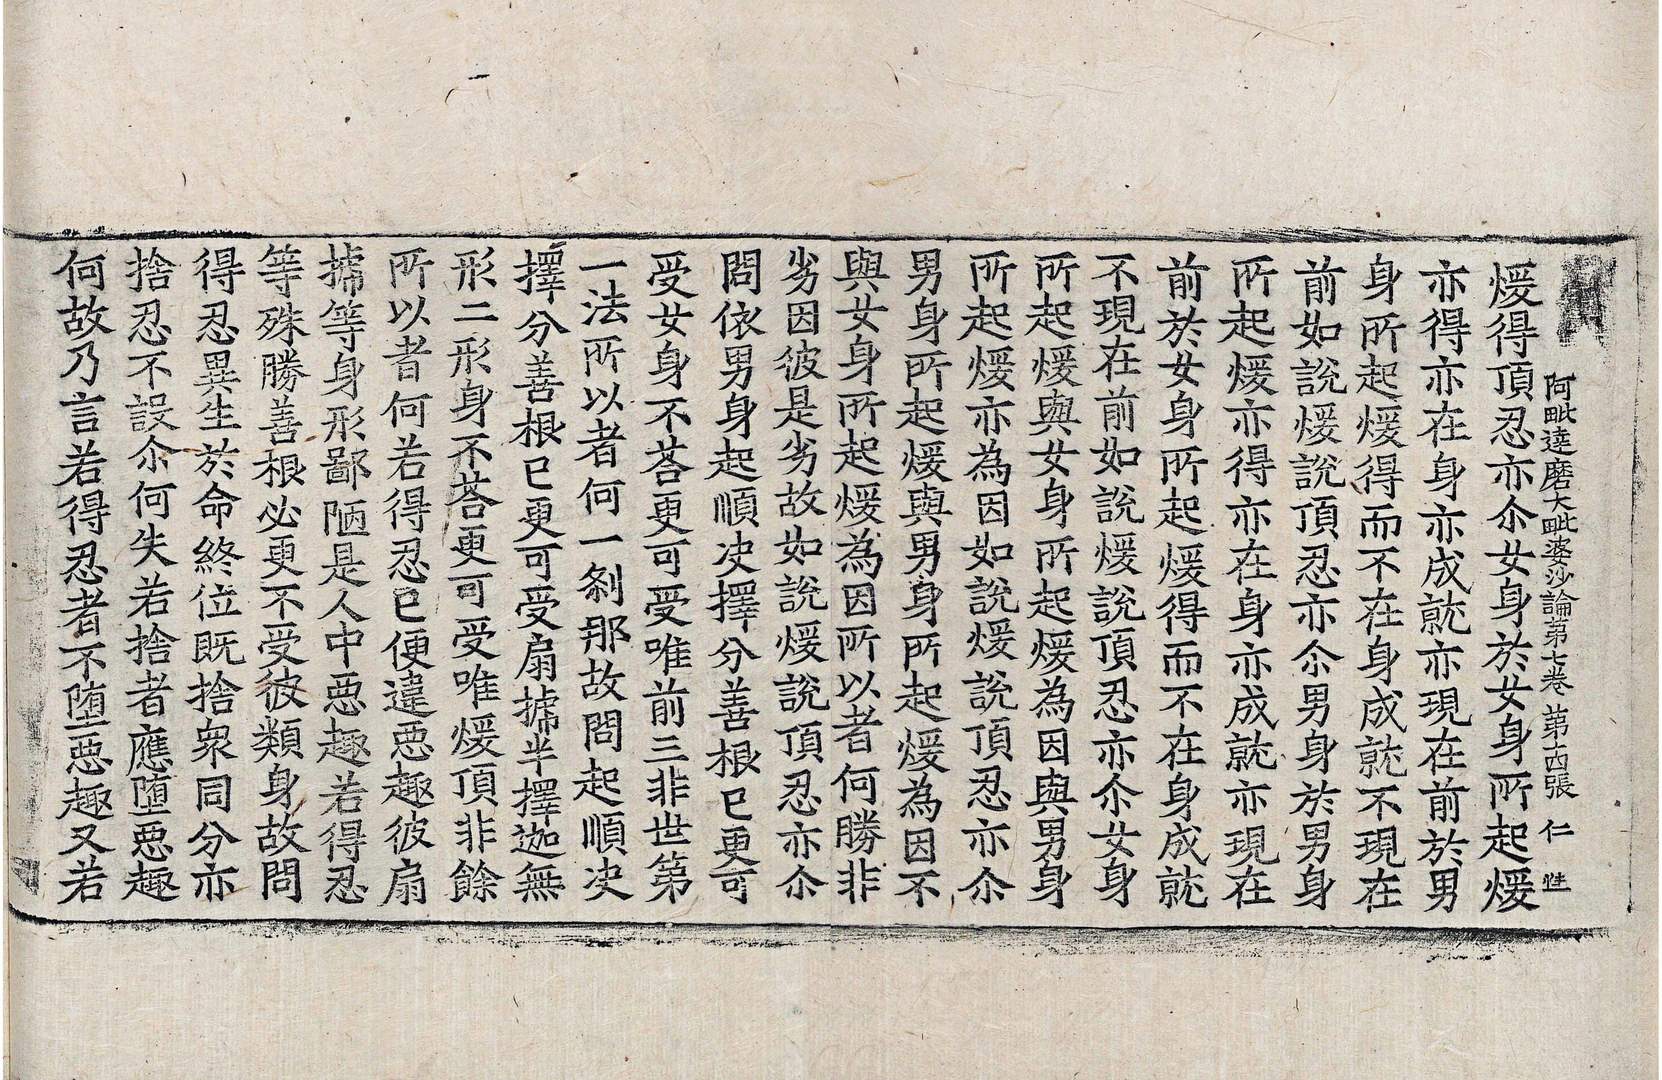 阿毗達磨大毗婆沙論第七卷 第十四張 仁 
煖得頂忍亦尒女身於女身所起煖
亦得亦在身亦成就亦現在前於男
身所起煖得而不在身成就不現在
前如說煖說頂忍亦尒男身於男身
所起煖亦得亦在身亦成就亦現在
前於女身所起煖得而不在身成就
不現在前如說煖說頂忍亦尒女身
所起煖與女身所起煖為因與男身
所起煖亦為因如說煖說頂忍亦尒
男身所起煖與男身所起煖為因不
與女身所起煖為因所以者何勝非
劣因彼是劣故如說煖說頂忍亦尒
問依男身起順決擇分善根已更可
受女身不荅更可受唯前三非世第
一法所以者何一剎那故問起順決
擇分善根已更可受扇搋半擇迦無
形二形身不荅更可受唯煖頂非餘
所以者何若得忍已便違惡趣彼扇
搋等身形鄙陋是人中惡趣若得忍
等殊勝善根必更不受彼類身故問
得忍異生於命終位既捨衆同分亦
捨忍不設尒何失若捨者應墮惡趣
何故乃言若得忍者不墮惡趣又若